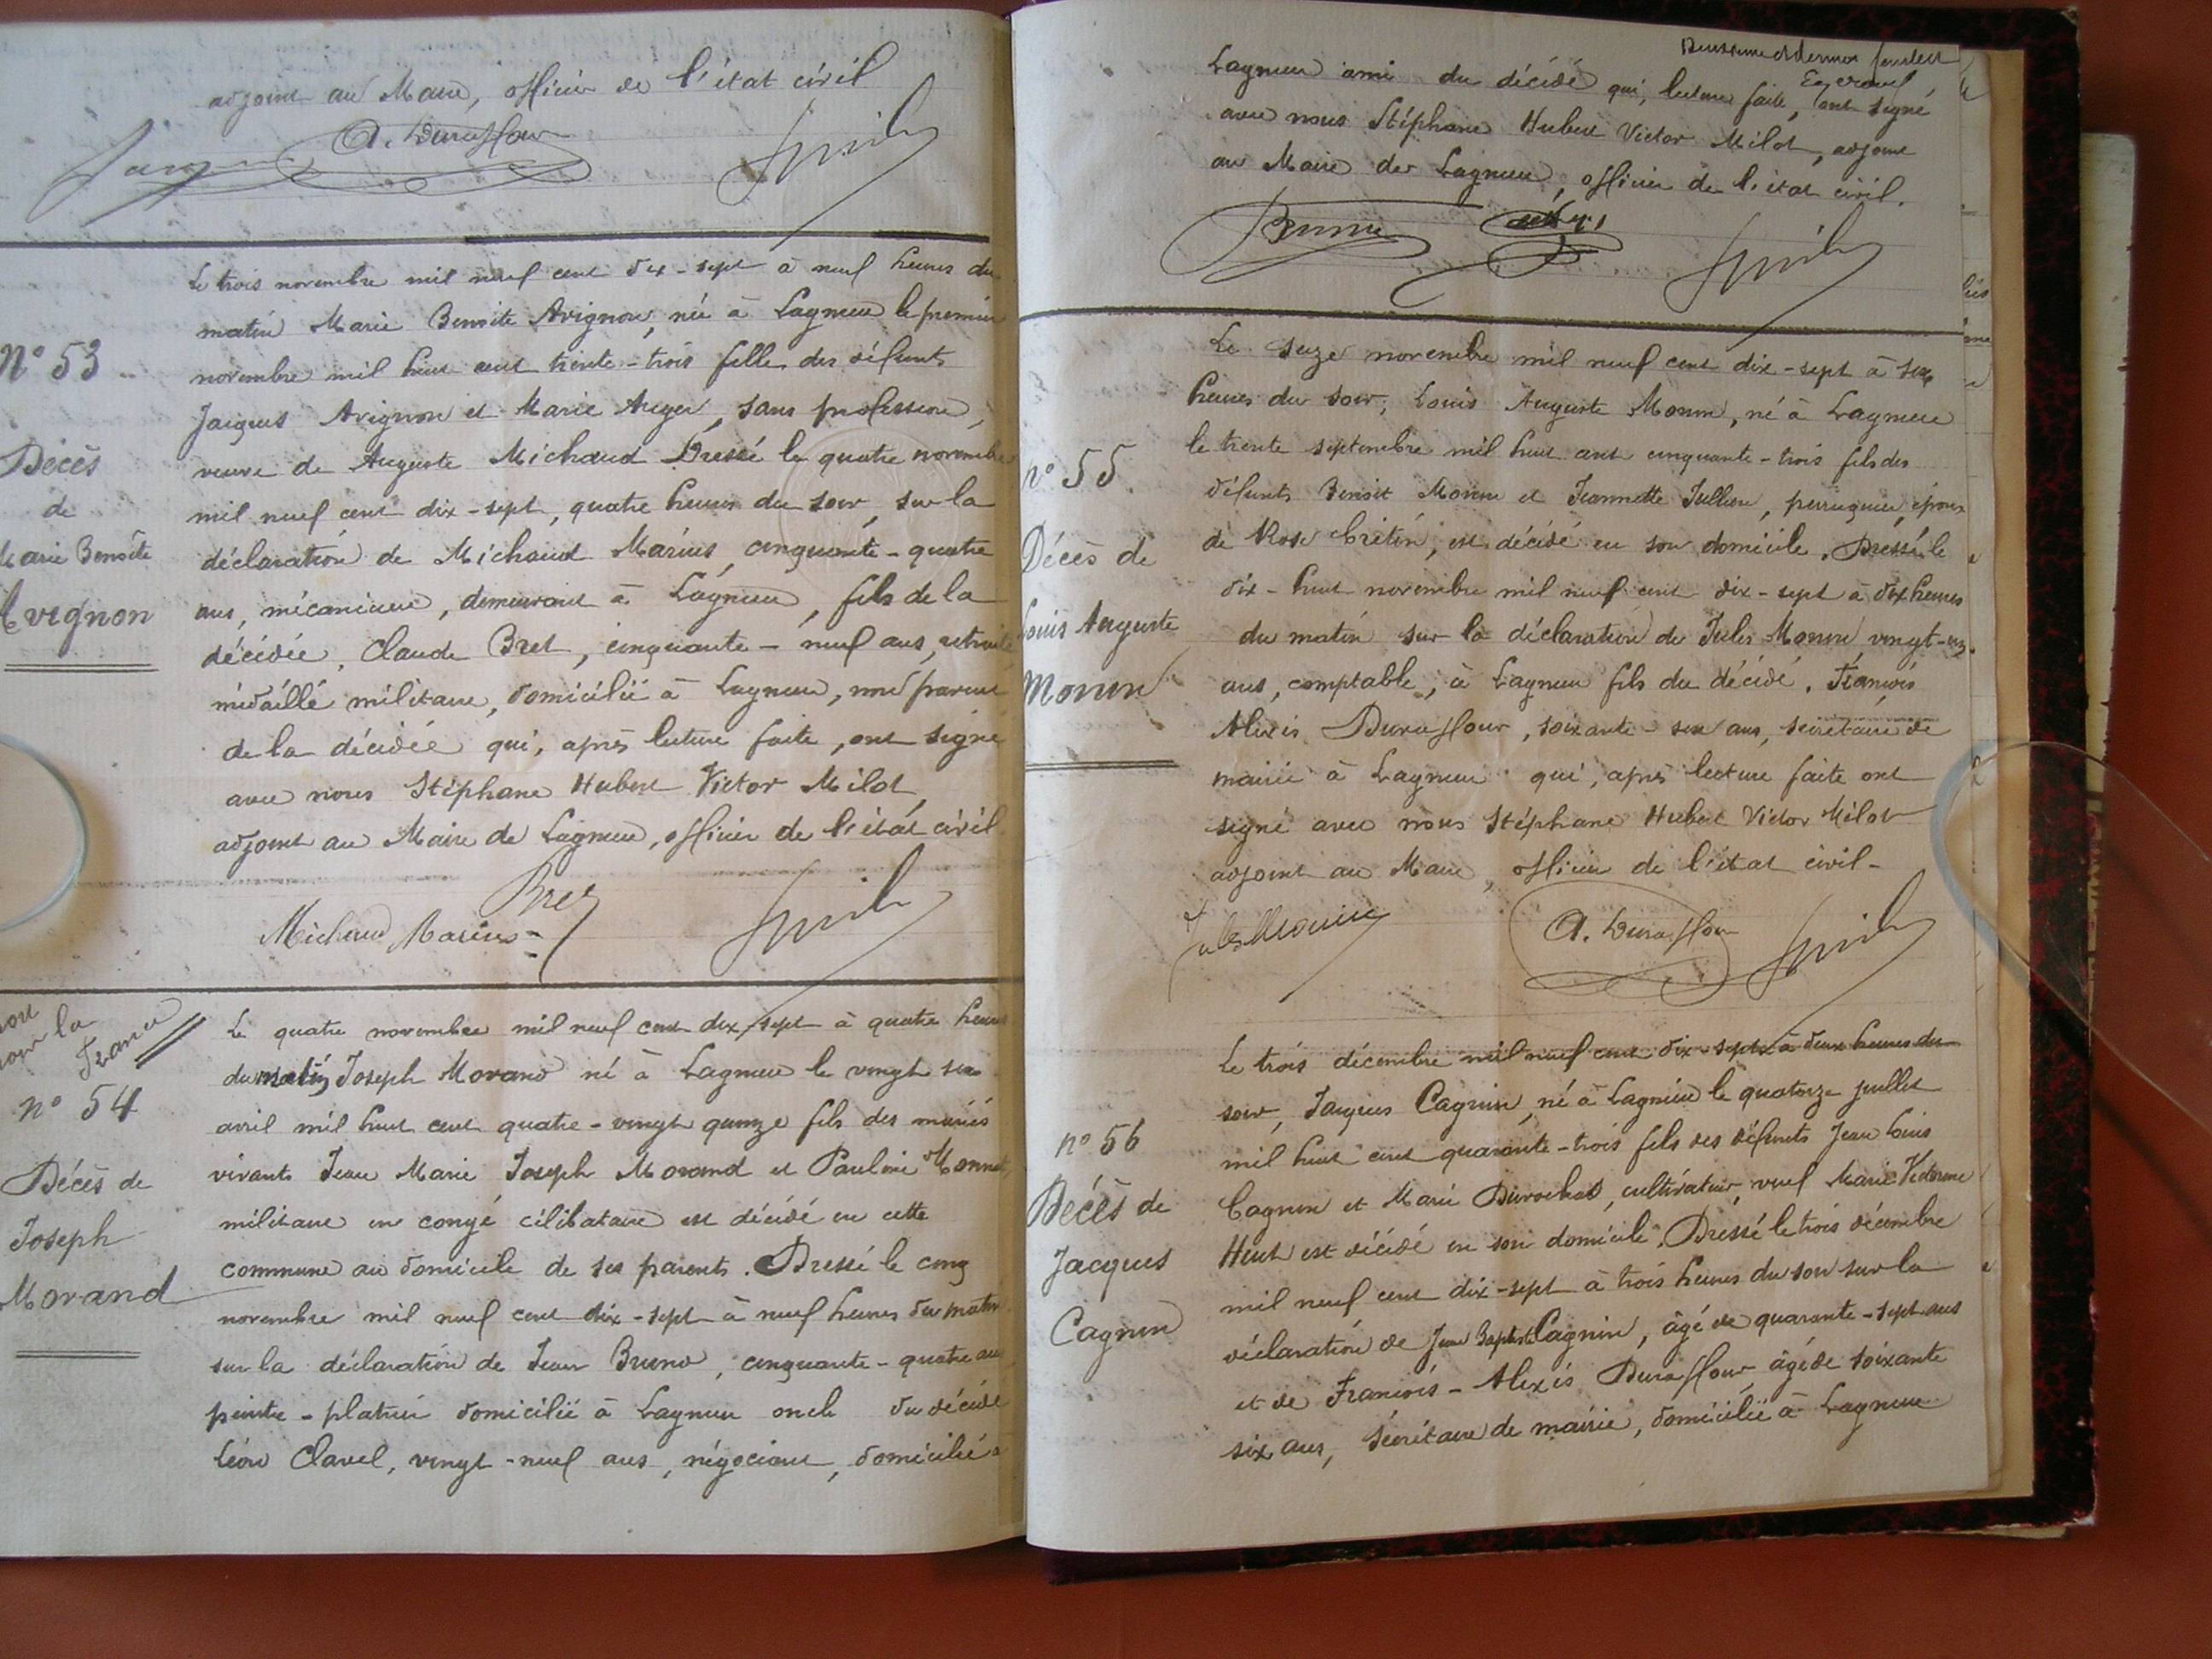 adjoint au Maire, officier de l'état civil
A. Duraffour
Le trois novembre mil neuf cent dix-sept à neuf heures du
matin Marie Benoite Avignon, née à Lagnieu le premier
novembre mil huit cent trente-trois fille des défunts
Jacques Avignon et Marie Auger, sans profession,
veuve de Auguste Michaud Dressé le quatre novembre
mil neuf cent dix-sept, quatre heures du soir, sur la
déclaration de Michaud Marius, cinquante-quatre
ans, mécanicien, demeurant à Lagnieu, fils de la
décédée, Claude Bret, cinquante-neuf ans, retraité
médaillé militaire, domicilié à Lagnieu, non parent
de la décédée qui, après lecture faite, ont signé
avec nous Stéphane Hubert Victor Milot,
adjoint au Maire de Lagnieu, officier de l'état civil
N° 53
Décès
de
Marie Benoite
Avignon
Bret
Michaud Marius
Mort
pour la
France
n° 54
Décès de
Joseph
Morand
Le quatre novembre mil neuf cent dix-sept à quatre heures
du matin, Joseph Morand né à Lagnieu le vingt six
avril mil huit cent quatre-vingt quinze fils des mariés
vivants Jean Marie Joseph Morand et Pauline Monnet,
militaire en congé célibataire est décédé en cette
commune au domicile de ses parents. Dressé le cinq
novembre mil neuf cent dix-sept à neuf heures du matin
sur la déclaration de Jean Bruno, cinquante-quatre ans
peintre-platrier domicilié à Lagnieu oncle du décédé
Léon Clavel, vingt-neuf ans, négociant, domicilié à
Deuxième et dernier feuillet
Lagnieu ami du décédé qui, lecture faite, ont signé
avec nous Stéphane Hubert Victor Milot, adjoint
au Maire de Lagnieu, officier de l'état civil.
Le seize novembre mil neuf cent dix-sept à six
heures du soir, Louis Auguste Monin, né à Lagnieu
le trente septembre mil huit cent cinquante-trois fils des
défunts Benoit Monin et Jeannette Jullien, perruquier, époux
de Rose Crétin, est décédé en son domicile. Dressé le
dix-huit novembre mil neuf cent dix-sept à dix heures
du matin sur la déclaration de Jules Monin, vingt-six
ans, comptable, à Lagnieu fils du décédé. François
Alexis Duraffour, soixante-six ans, secrétaire de
mairie à Lagnieu qui, après lecture faite ont
signé avec nous Stéphane Hubert Victor Milot
adjoint au Maire, officier de l'état civil-
n° 55
Décès de
Louis Auguste
Monin
Jules Monin
A. Duraffour
Le trois décembre mil neuf cent dix-sept à deux heures du
soir, Jacques Cagnin, né à Lagnieu le quatorze juillet
mil huit cent quarante-trois fils des défunts Jean Louis
Cagnin et Marie Durochat, cultivateur, veuf Marie Victorine
est décédé en son domicile. Dressé le trois décembre
mil neuf cent dix-sept à trois heures du soir sur la
déclaration de Jean Baptiste Cagnin, âgé de quarante-sept ans
et de François-Alexis Duraffour âgé de soixante
six ans, secrétaire de mairie, domicilié à Lagnieu
n° 56
Décès de
Jacques
Cagnin